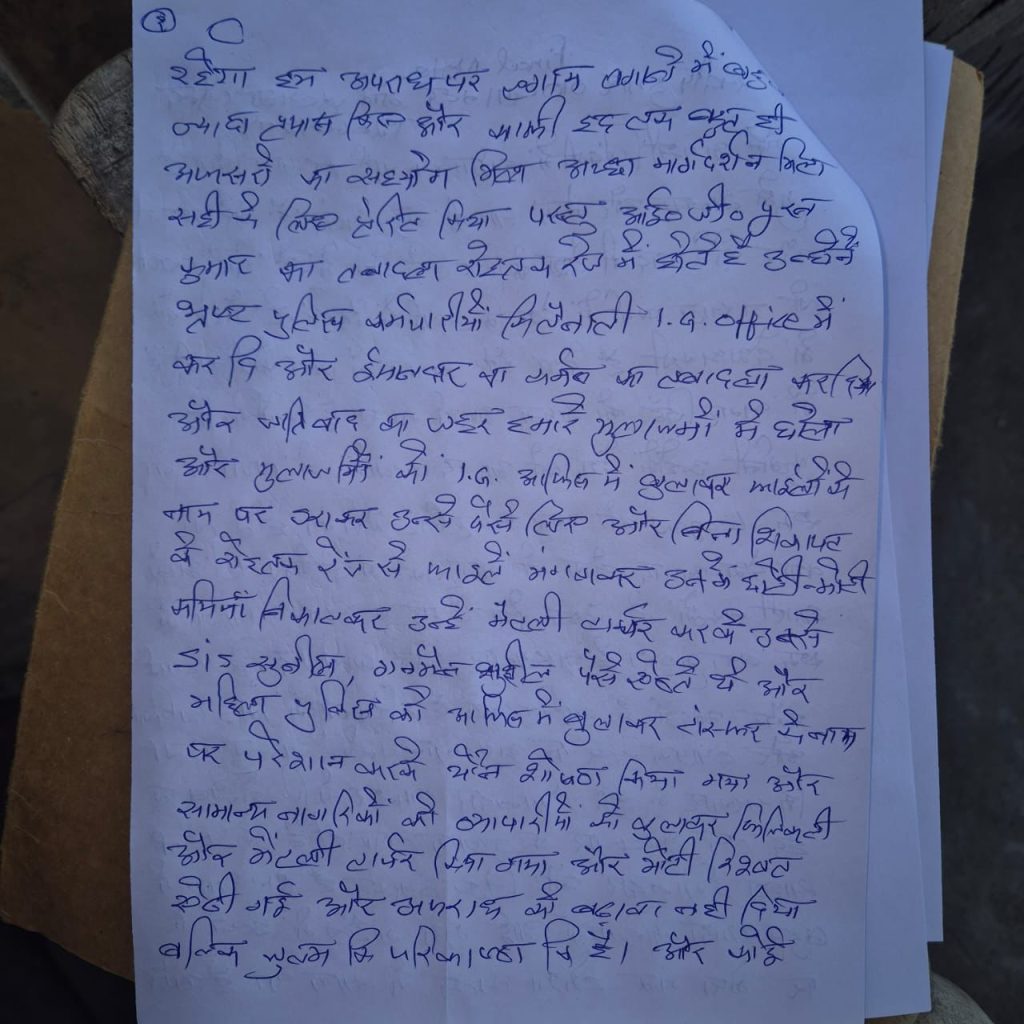 ३
रहेगा इस अपराध पर लगाम लगाने में बहु
ज्यादा प्रयास किए और काफी हद तक बहुत ही
अफसरो का सहयोग मिला अच्छा मार्गदर्शन मिला
सही के लिए प्रेरित किया परन्तु आई० जी० पुरन
कुमार का तबादला रोहतक रेंज में होते ही उन्होंने
भ्रष्ट पुलिस कर्मचारीयों की तैनाती I.G. Office में
कर दि और ईमानदार का तबादला कर दिया
और जातिवाद का जहर हमारे मुलाजमों मे घोला
और मुलाजमों को I.G. आफिस में बुलाकर फाईलों के
नाम पर डराकर उनसे पैसे लिए और बिना शिकायत
के रोहतक रेंज से फाईलें मंगवाकर उनमें छोटी-मोटी
कमियां निकालकर उन्हें मेंटली टार्चर करके उनसे
सुनील, गनमैन सुशील पैसे ऐंठते थे और
महिला पुलिस को आफिस में बुलाकर ट्रांसफर के नाम
पर परेशान करके यौन शोषण किया गया और
सामान्य नागरिकों को व्यापारीयों को बुलाकर फिजिकली
और मेंटली टार्चर किया गया और मोटी रिश्वत
ऐंठी गई और अपराध को बढावा नही दिया
बल्कि जुल्म कि पराकाष्ठा कि है। और कोई